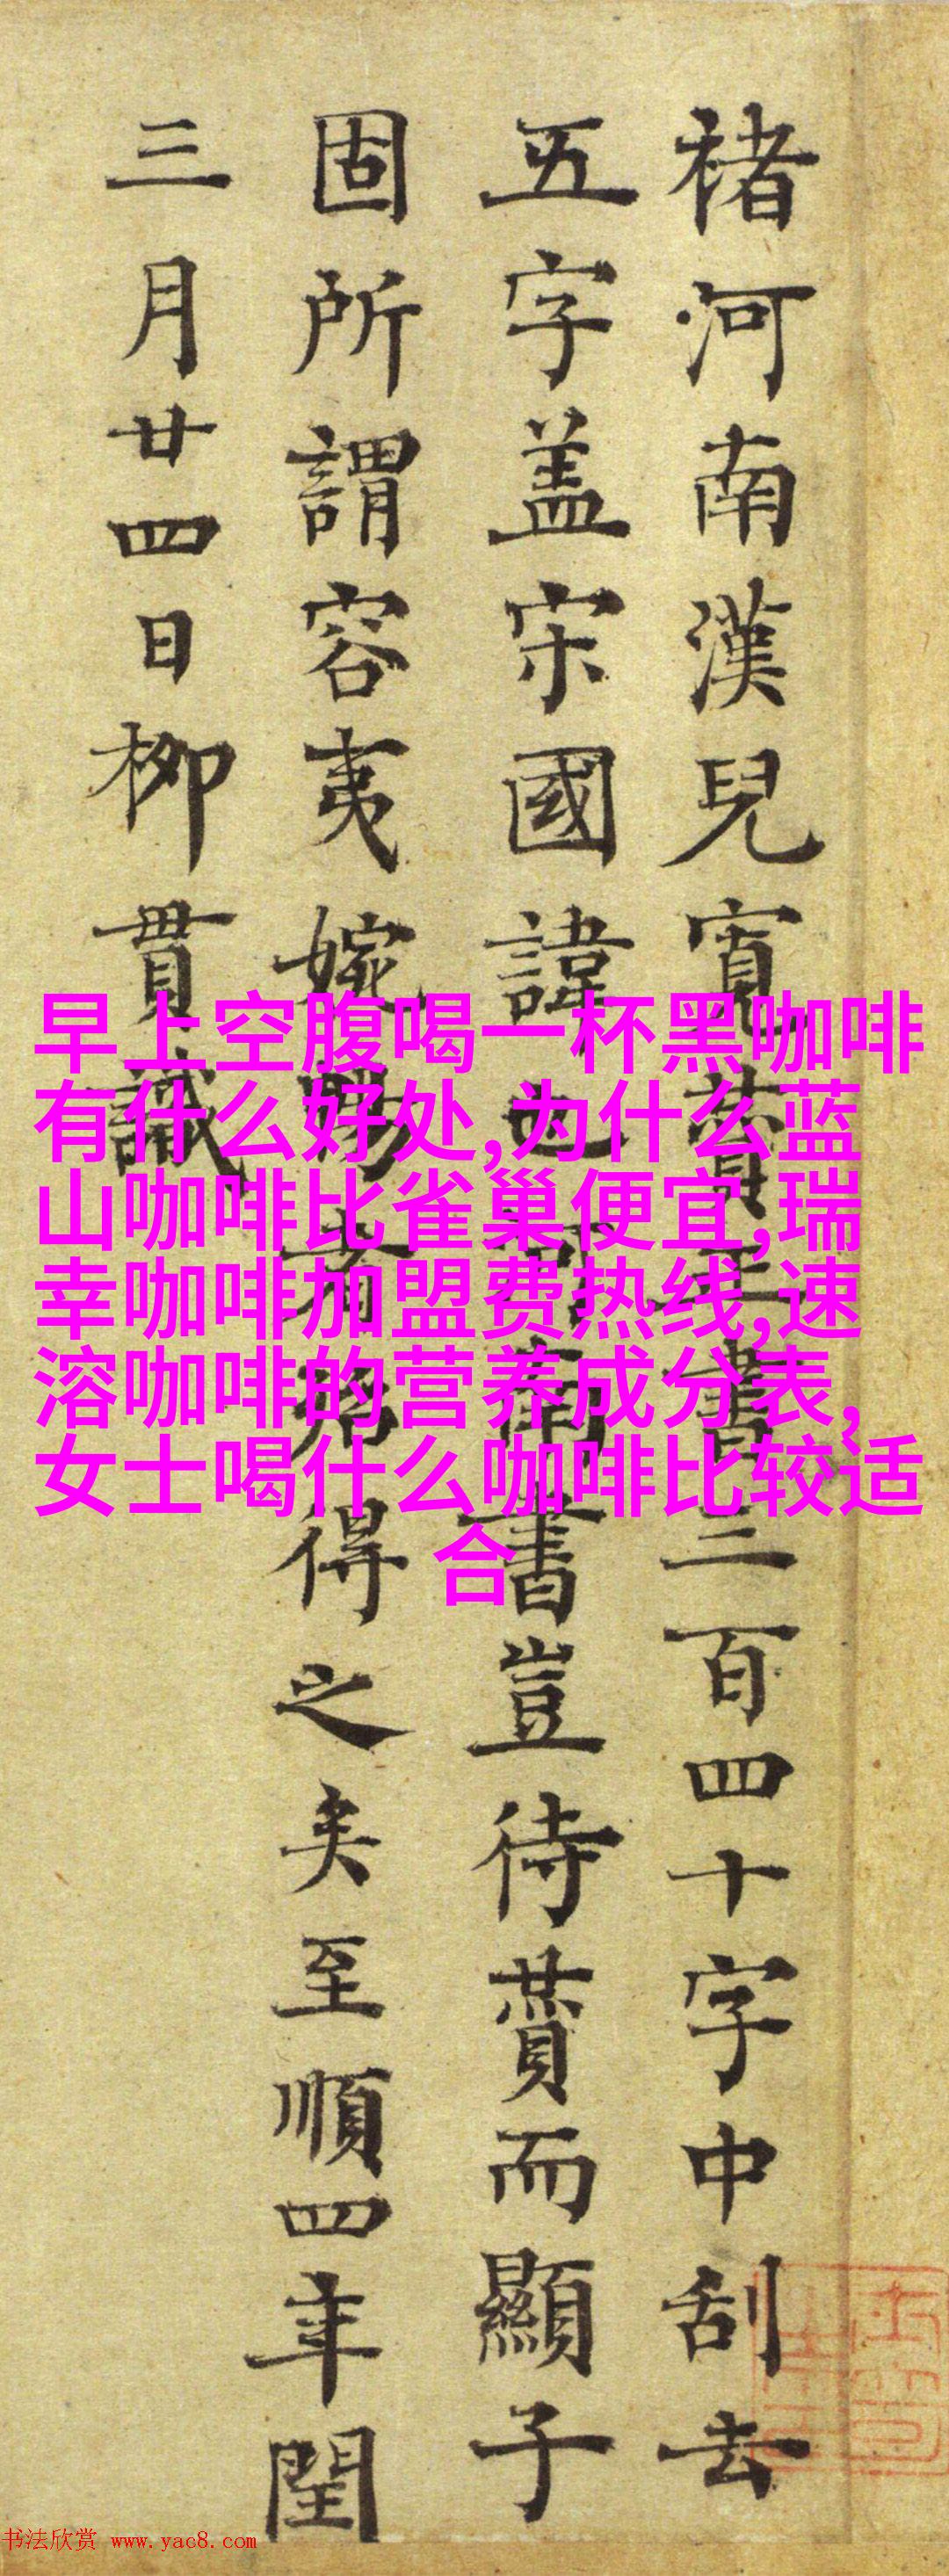 褚河南漢兒寬贊正書三百四十字中刮去
五字盖宋國諱也河南書豈待賛而顯子
固所謂容夷婉暢者得之矣至順四年閏
三月廿四日柳貫識
早上空腹喝一杯黑咖啡
有什么好处,为什么蓝
山咖啡比雀巢便宜,瑞
幸咖啡加盟费热线,速
溶咖啡的营养成分表,
女士喝什么咖啡比较适
合
书法欣赏 www.yac8.com